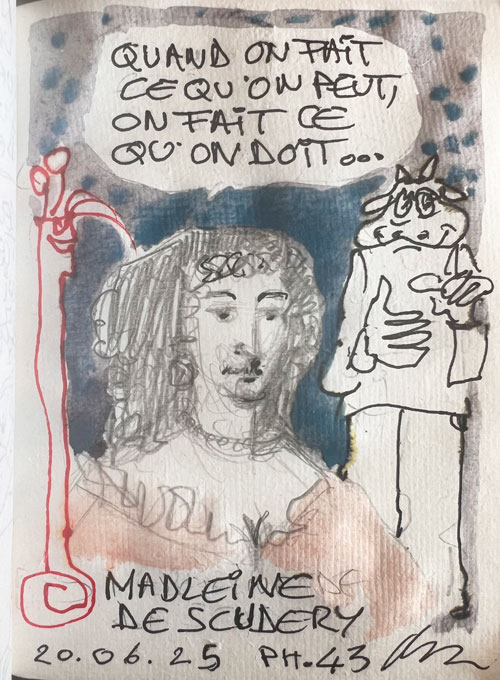 QUAND ON FAIT
CE QU'ON PEUT,
ON FAIT CE
QU'ON DOIT...
MADLEINE DE
DE SCUDERY
20.06.25 PH.43